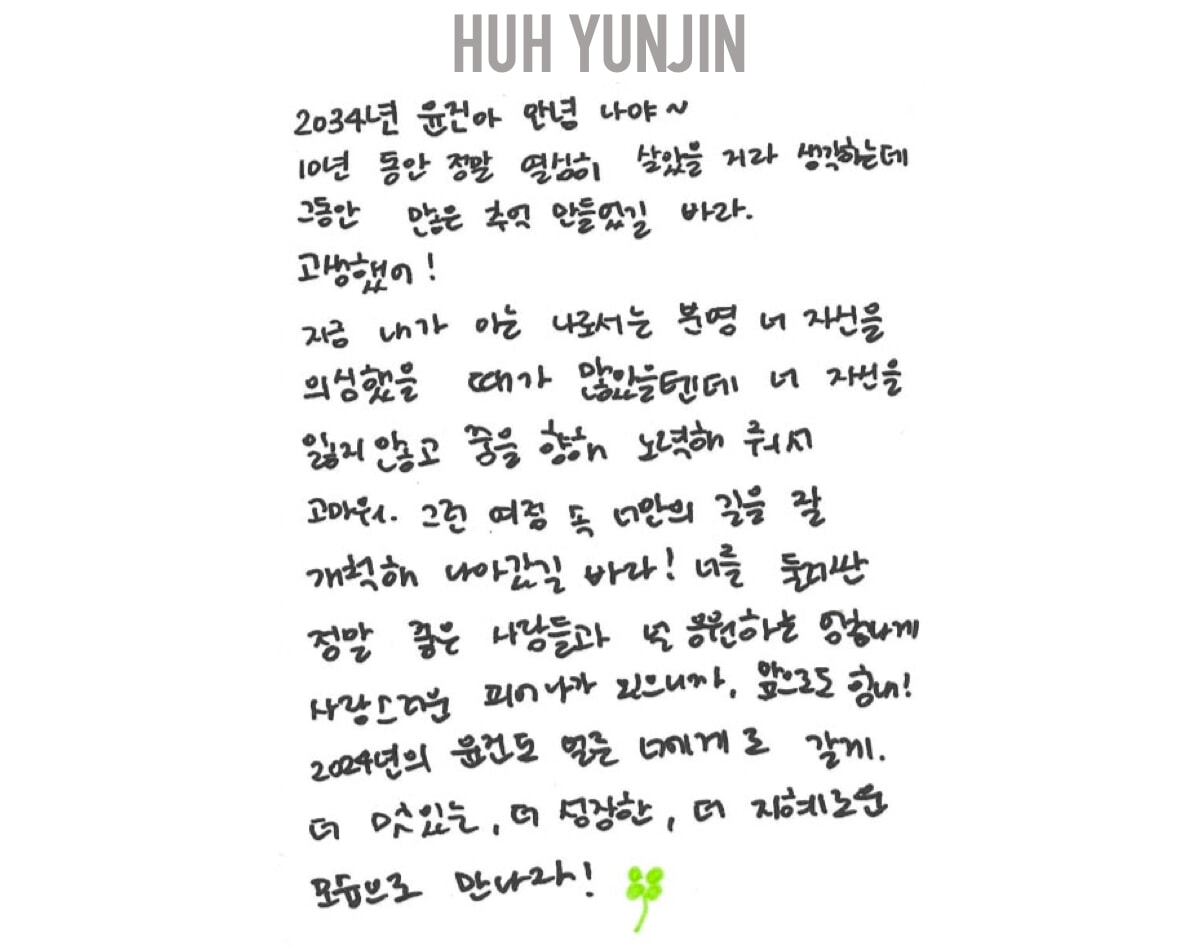 HUH YUNJIN
2034년 윤진아 안녕 나야~
10년 동안 정말 열심히 살았을 거라 생각하는데
그동안 많은 추억 만들었길 바라.
고생했어!
지금 내가 아는 나로서는 분명 너 자신을
의심했을 때가 많았을텐데 너 자신을
잃지 않고 꿈을 향해 노력해 줘서
고마워. 그런 여정 속 너만의 길을 잘
개척해 나아갔길 바라! 너를 둘러싼
정말 좋은 사람들과 널 응원하는 엄청나게
사랑스러운 피어나가 있으니까, 앞으로도 힘내!
2024년의 윤진도 얼른 너에게로 갈게.
더 멋있는, 더 성장한, 더 지혜로운
모습으로 만나자!